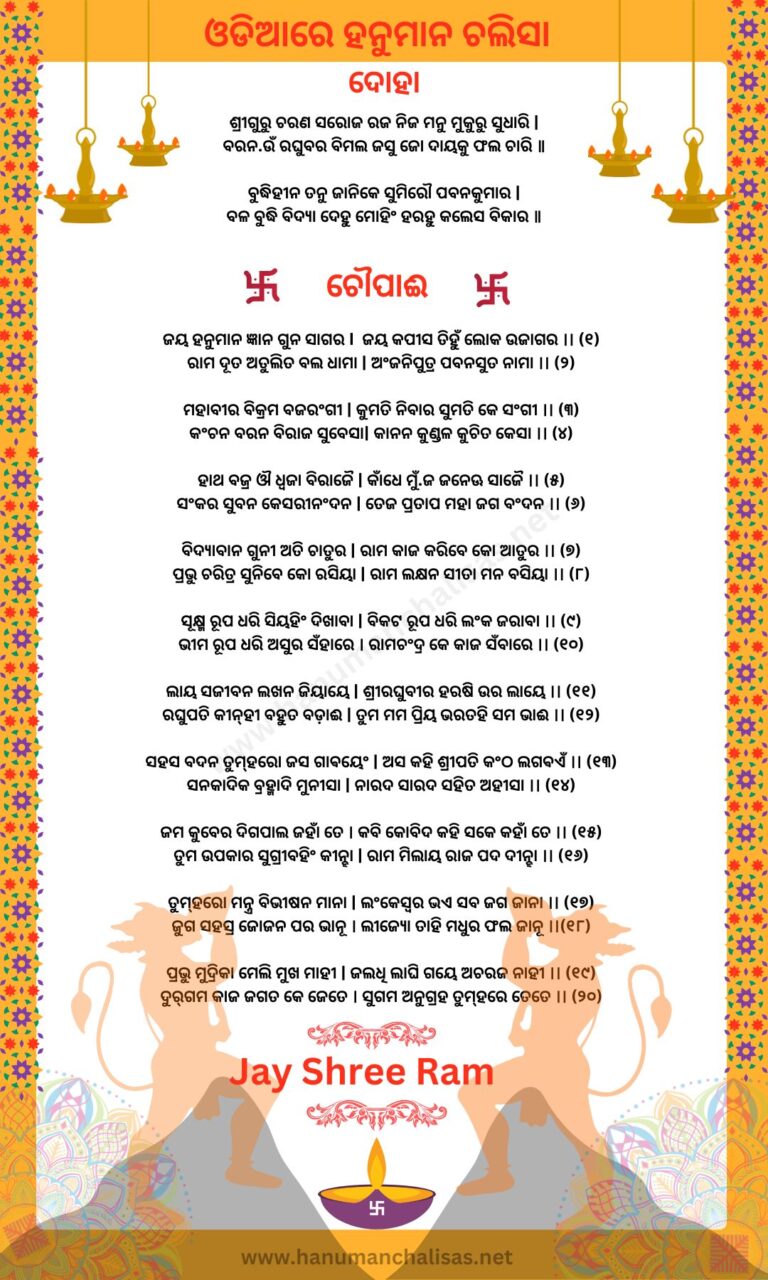 ଓଡିଆରେ ହନୁମାନ ଚଲିସା
ଦୋହା
ଶ୍ରୀଗୁରୁ ଚରଣ ସରୋଜ ରଜ ନିଜ ମନୁ ମୁକୁରୁ ସୁଧାରି |
ବରନ.ଉଁ ରଘୁବର ବିମଲ ଜସୁ ଜୋ ଦାୟକୁ ଫଲ ଚାରି ॥
ବୁଦ୍ଧିହୀନ ତନୁ ଜାନିକେ ସୁମିରୌ ପବନକୁମାର |
ବଳ ବୁଦ୍ଧି ବିଦ୍ୟା ଦେହୁ ମୋହିଂ ହରହୁ କଲେସ ବିକାର ॥
卐 ଚୌପାଈ 卐
ଜୟ ହନୁମାନ ଜ୍ଞାନ ଗୁନ ସାଗର । ଜୟ କପୀସ ତିହୁଁ ଲୋକ ଉଜାଗର ।। (୧)
ରାମ ଦୂତ ଅତୁଲିତ ବଲ ଧାମା | ଅଂଜନିପୁତ୍ର ପବନସୁତ ନାମା ।। (୨)
ମହାବୀର ବିକ୍ରମ ବଜରଂଗୀ | କୁମତି ନିବାର ସୁମତି କେ ସଂଗୀ ।। (୩)
କଂଚନ ବରନ ବିରାଜ ସୁବେସା| କାନନ କୁଣ୍ଡଳ କୁଚିତ କେସା ।। (୪)
ହାଥ ବଜ୍ର ଔ ଧ୍ୱଜା ବିରାଜୈ | କାଁଧେ ମୁଁ.ଜ ଜନେଊ ସାଜୈ ।। (୫)
ସଂକର ସୁବନ କେସରୀନଂଦନ | ତେଜ ପ୍ରତାପ ମହା ଜଗ ବଂଦନ ।। (୬)
ବିଦ୍ୟାବାନ ଗୁନୀ ଅତି ଚାତୁର | ରାମ କାଜ କରିବେ କୋ ଆତୁର ।। (୭)
ପ୍ରଭୁ ଚରିତ୍ର ସୁନିବେ କୋ ରସିୟା | ରାମ ଲକ୍ଷନ ସୀତା ମନ ବସିୟା ।। (୮)
ସୂକ୍ଷ୍ମ ରୂପ ଧରି ସିୟହିଂ ଦିଖାବା | ବିକଟ ରୂପ ଧରି ଲଂକ ଜରାବା ।। (୯)
ଭୀମ ରୂପ ଧରି ଅସୁର ସଁହାରେ । ରାମଚଂଦ୍ର କେ କାଜ ସଁବାରେ ।। (୧୦)
ଲାୟ ସଜୀବନ ଲଖନ ଜିୟାୟେ | ଶ୍ରୀରଘୁବୀର ହରଷି ଉର ଲାୟେ ।। (୧୧)
ରଘୁପତି କୀନ୍‌ହୀ ବହୁତ ବଡ଼ାଈ | ତୁମ ମମ ପ୍ରିୟ ଭରତହି ସମ ଭାଈ ।। (୧୨)
ସହସ ବଦନ ତୁମ୍‌ହରୋ ଜସ ଗାବୟେଂ | ଅସ କହି ଶ୍ରୀପତି କଂଠ ଲଗବଏଁ ।। (୧୩)
ସନକାଦିକ ବ୍ରହ୍ମାଦି ମୁନୀସା | ନାରଦ ସାରଦ ସହିତ ଅହୀସା ।। (୧୪)
ଜମ କୁବେର ଦିଗପାଲ ଜହାଁ ତେ । କବି କୋବିଦ କହି ସକେ କହାଁ ତେ ।। (୧୫)
ତୁମ ଉପକାର ସୁଗ୍ରୀବହିଂ କୀନ୍ହା | ରାମ ମିଲାୟ ରାଜ ପଦ ଦୀନ୍ହା ।। (୧୬)
ତୁମ୍‌ହରୋ ମନ୍ତ୍ର ବିଭୀଷନ ମାନା | ଲଂକେସ୍ୱର ଭଏ ସବ ଜଗ ଜାନା ।। (୧୭)
ଜୁଗ ସହସ୍ର ଜୋଜନ ପର ଭାନୂ । ଲୀଜ୍ୟୋ ତାହି ମଧୁର ଫଲ ଜାନୂ ।।(୧୮)
ପ୍ରଭୁ ମୁଦ୍ରିକା ମେଲି ମୁଖ ମାହୀ | ଜଲଧି ଲାଘି ଗୟେ ଅଚରଜ ନାହୀ ।। (୧୯)
ଦୁର୍‌ଗମ କାଜ ଜଗତ କେ ଜେତେ । ସୁଗମ ଅନୁଗ୍ରହ ତୁମ୍‌ହରେ ତେତେ ।। (୨୦)
www.hanumanchalisas.net
Jay Shree Ram
卐
www.hanumanchalisas.net